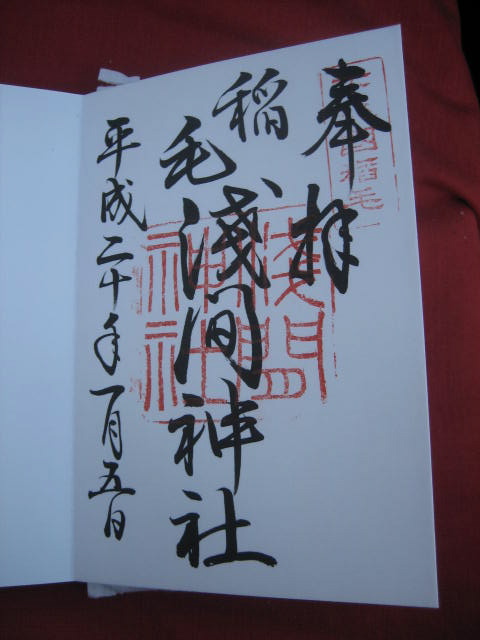 奉拝
稲毛
淺間神社
平成二十年一月五日
淺間
神社